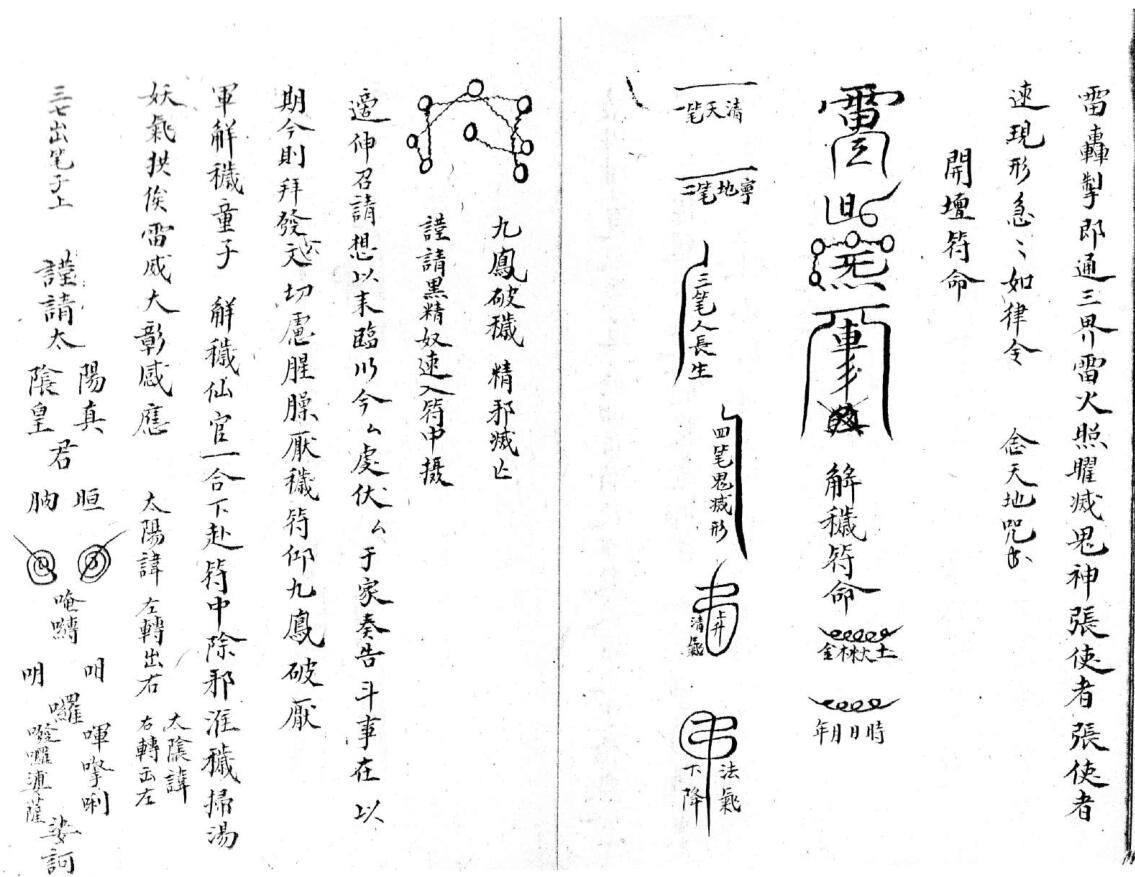 雷轟掣郎通三界雷火照曜滅鬼神張使者張使者
速現形急〻如律令　念天地咒
開壇符命
解穢符命
土火水木金
時日月年
清天笔一
寧地笔二
三笔人長生
四笔鬼滅形
上升清炁
法炁下降
九鳳破穢精邪滅亡
謹請黑精奴速入符中摄
遙伸召請想以来臨以今ム處伏ム于家奏告斗事在以
期今則拜發文ム切慮腥臊厭穢符仰九鳳破厭
軍解穢童子　解穢仙官一合下赴符中除邪淮穢掃湯
妖氣拱俟雷威大彰感應　太陽諱左轉出右　太陰諱右轉出左
三七出笔于上　謹請太陽真
陰皇
君
晅
胊
唵
嚩